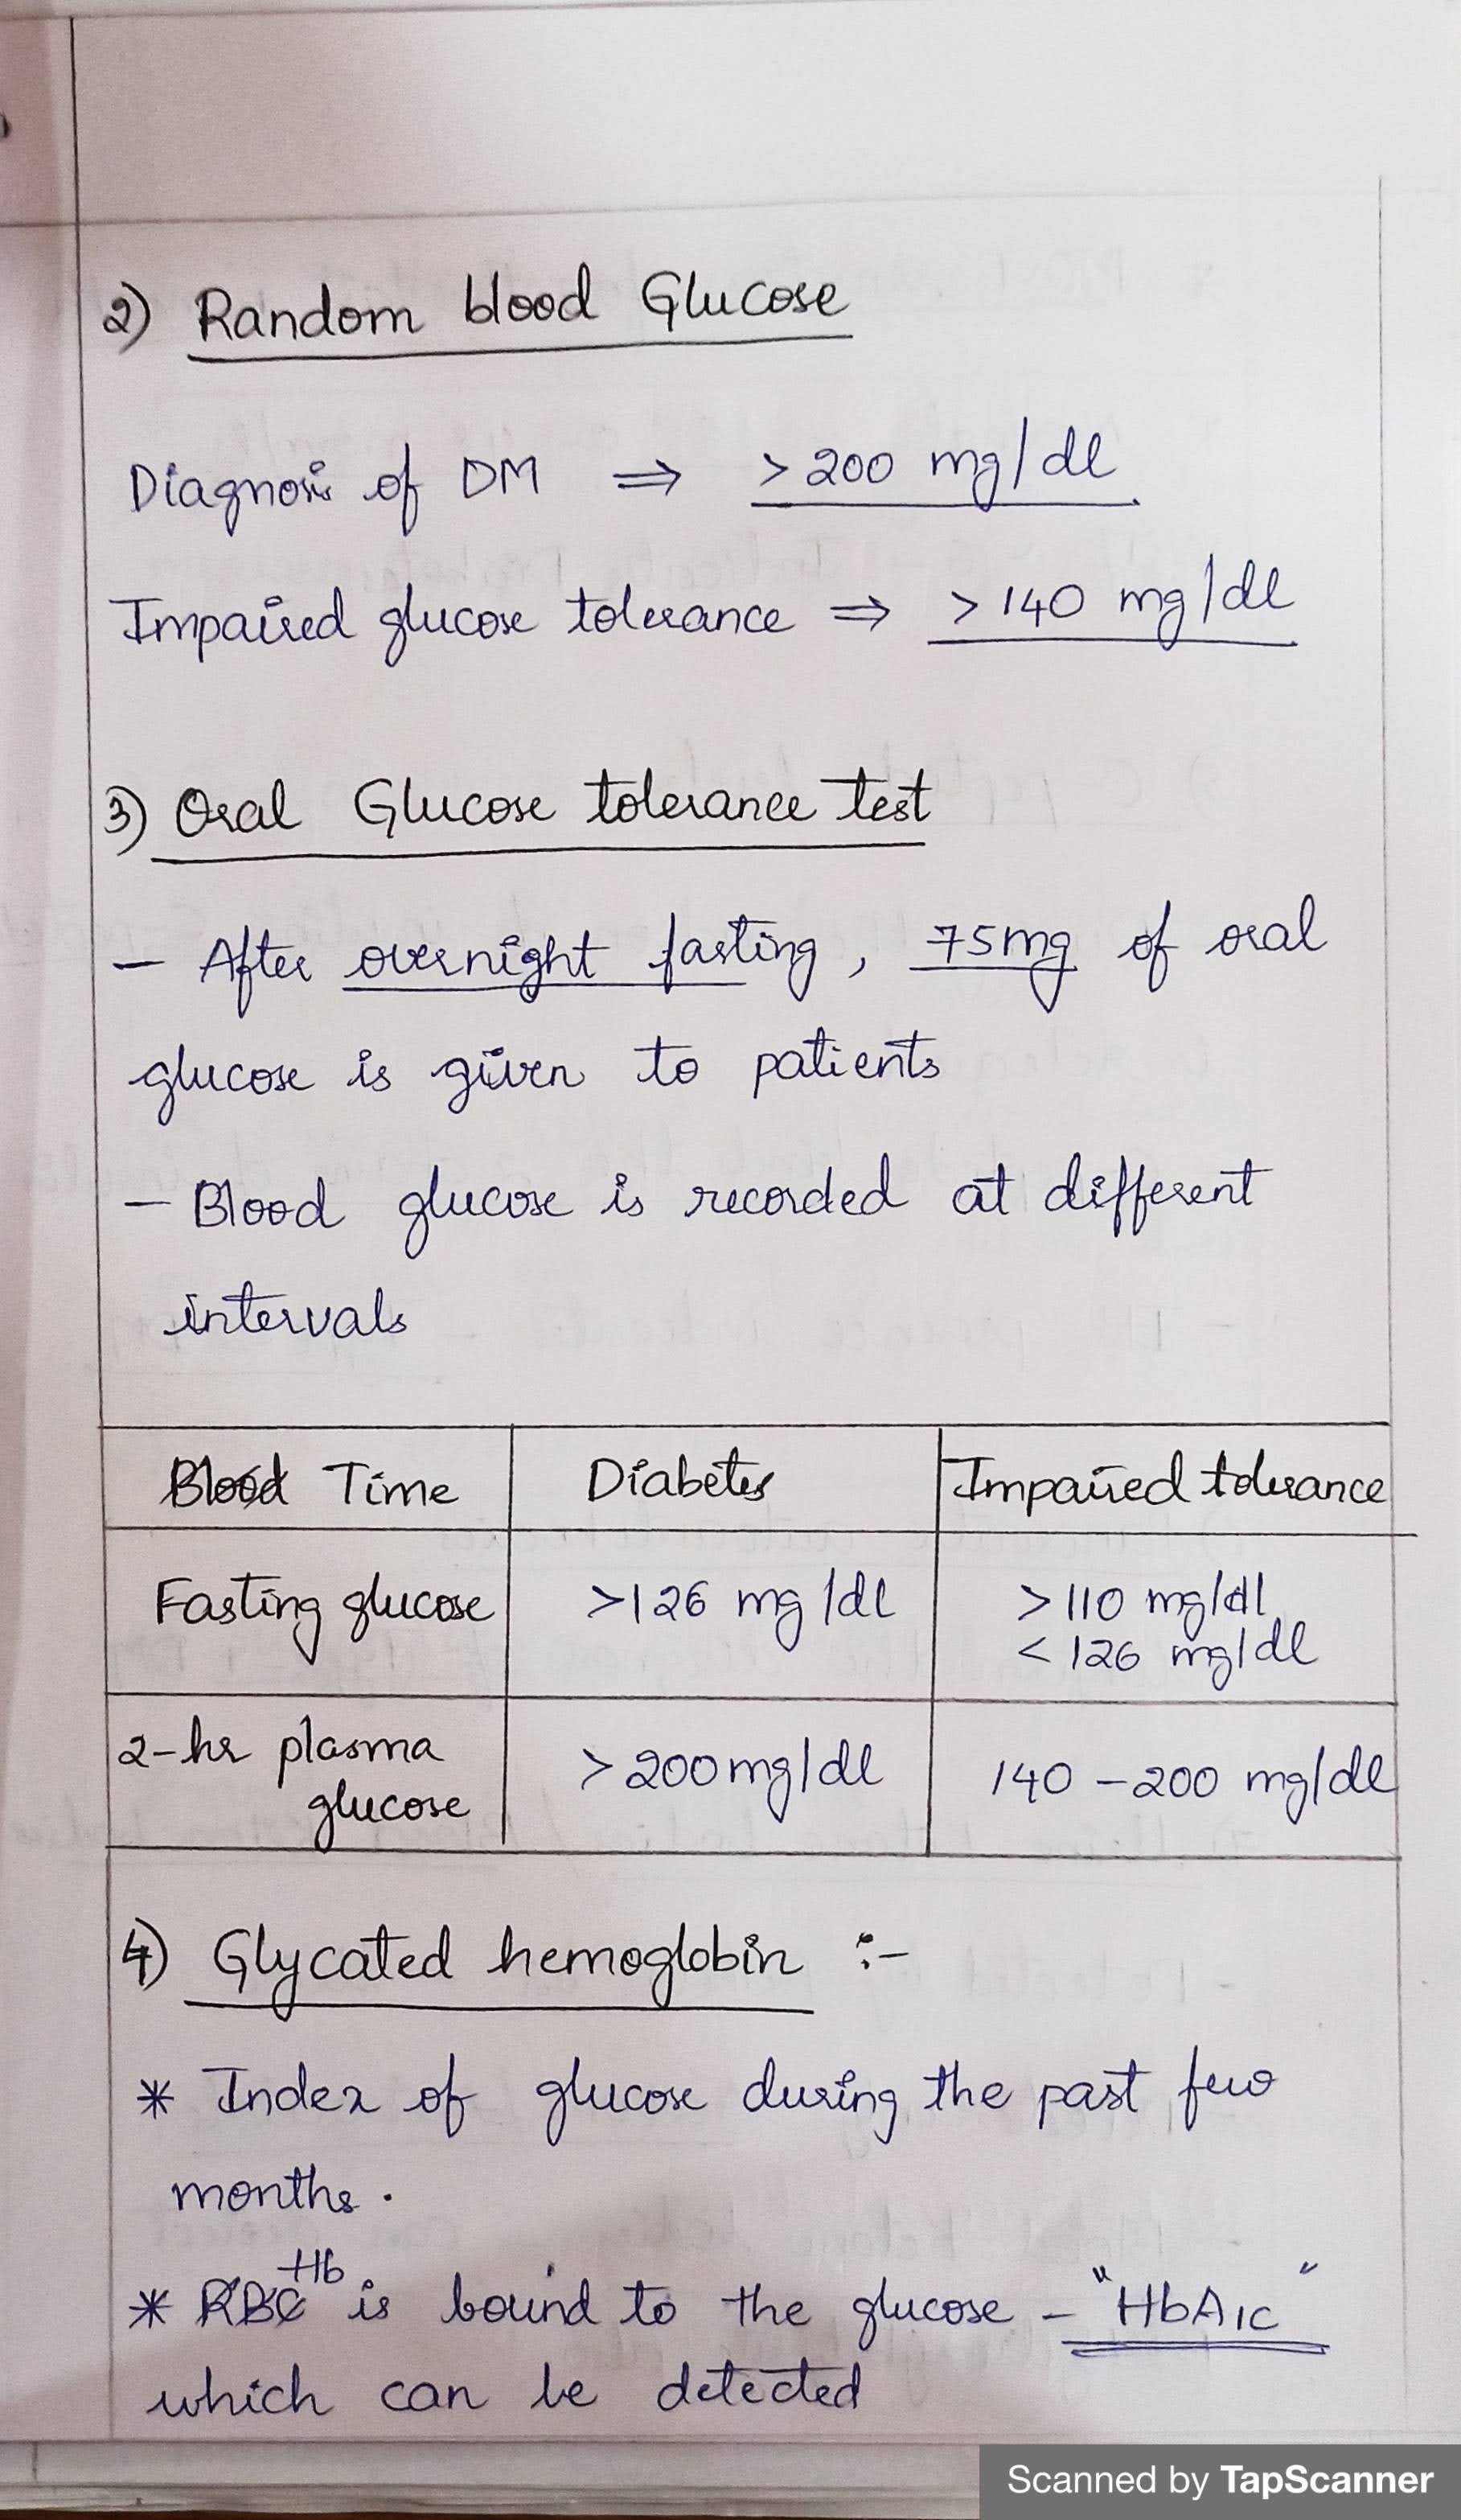 2) Random blood Glucose
Diagnosis of DM ⇒ >200 mg/dl.
Impaired glucose tolerance ⇒ >140 mg/dl
3) Oral Glucose tolerance test
— After overnight fasting, 75mg of oral
glucose is given to patients
— Blood glucose is recorded at different
intervals
Blood Time | Diabetes | Impaired tolerance
Fasting glucose | >126 mg/dl | >110 mg/dl
<126 mg/dl
2-hr plasma | >200mg/dl | 140 - 200 mg/dl
glucose
4) Glycated hemoglobin :-
* Index of glucose during the past few
months.
* RBC Hb is bound to the glucose - "HbA1c"
which can be detected
Scanned by TapScanner